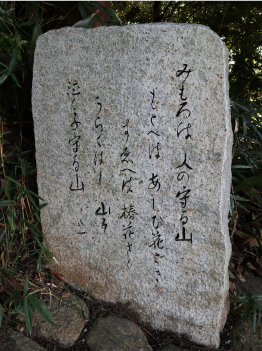 みもろは 人の守る山
もとへは あしび花さき
すゑへは 椿花さく
うらぐはし 山そ
泣く子守る山